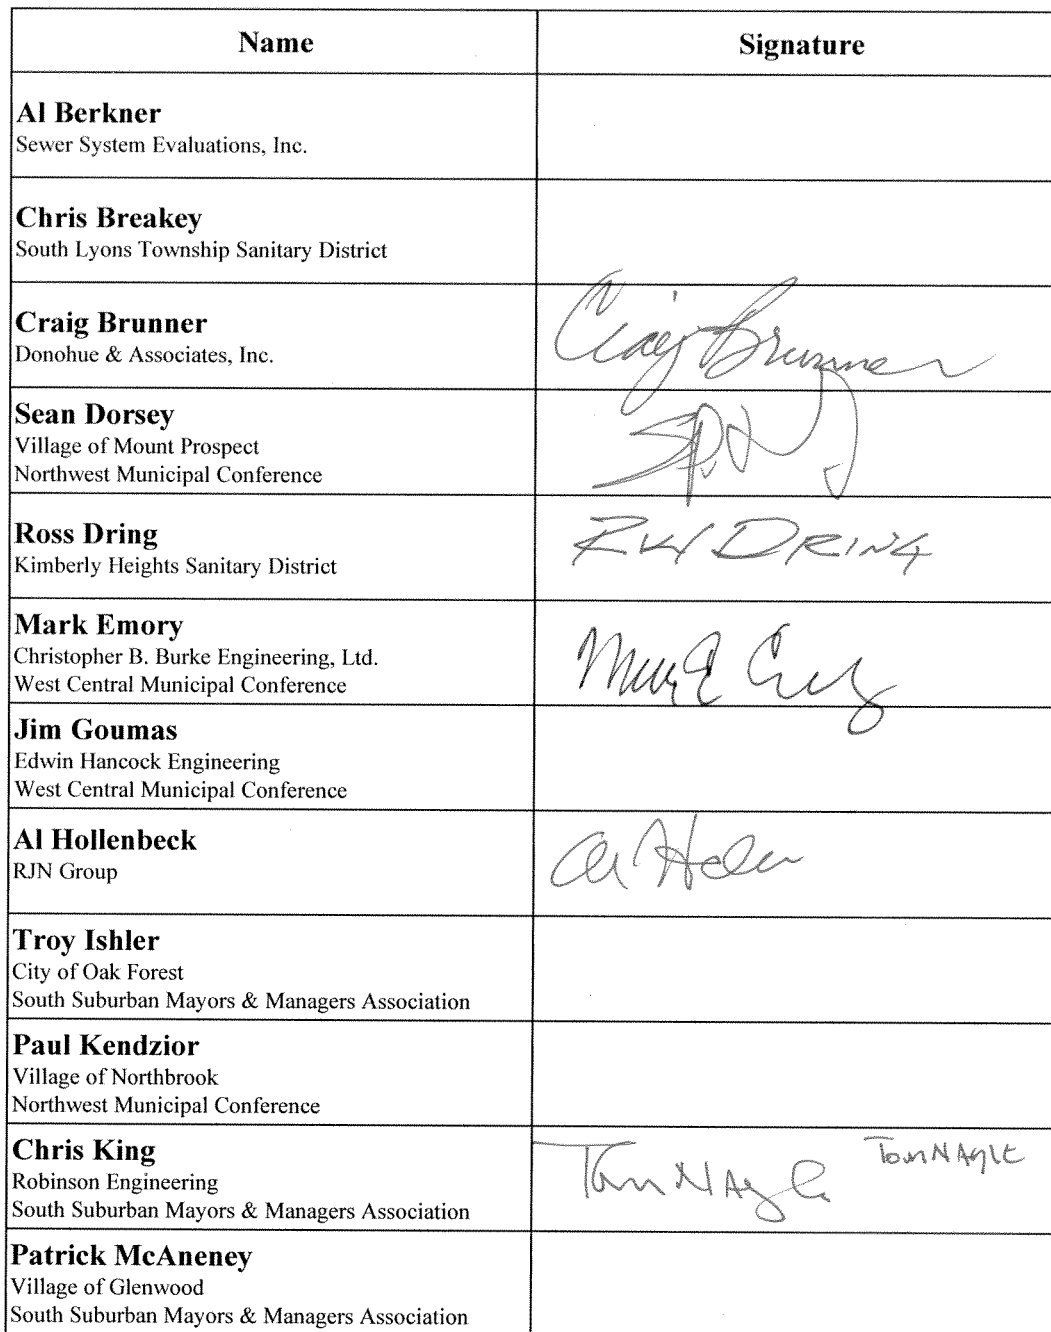 Name
Signature
Al Berkner
Sewer System Evaluations, Inc.
Chris Breakey
South Lyons Township Sanitary District
Craig Brunner
Donohue & Associates, Inc.
Craig Brunner
Sean Dorsey
Village of Mount Prospect
Northwest Municipal Conference
Ross Dring
Kimberly Heights Sanitary District
DRING
Mark Emory
Christopher B. Burke Engineering, Ltd.
West Central Municipal Conference
Jim Goumas
Edwin Hancock Engineering
West Central Municipal Conference
Al Hollenbeck
RJN Group
Al
Troy Ishler
City of Oak Forest
South Suburban Mayors & Managers Association
Paul Kendzior
Village of Northbrook
Northwest Municipal Conference
Chris King
Robinson Engineering
South Suburban Mayors & Managers Association
Tom NAgle
Tom NAglE
Patrick McAneney
Village of Glenwood
South Suburban Mayors & Managers Association